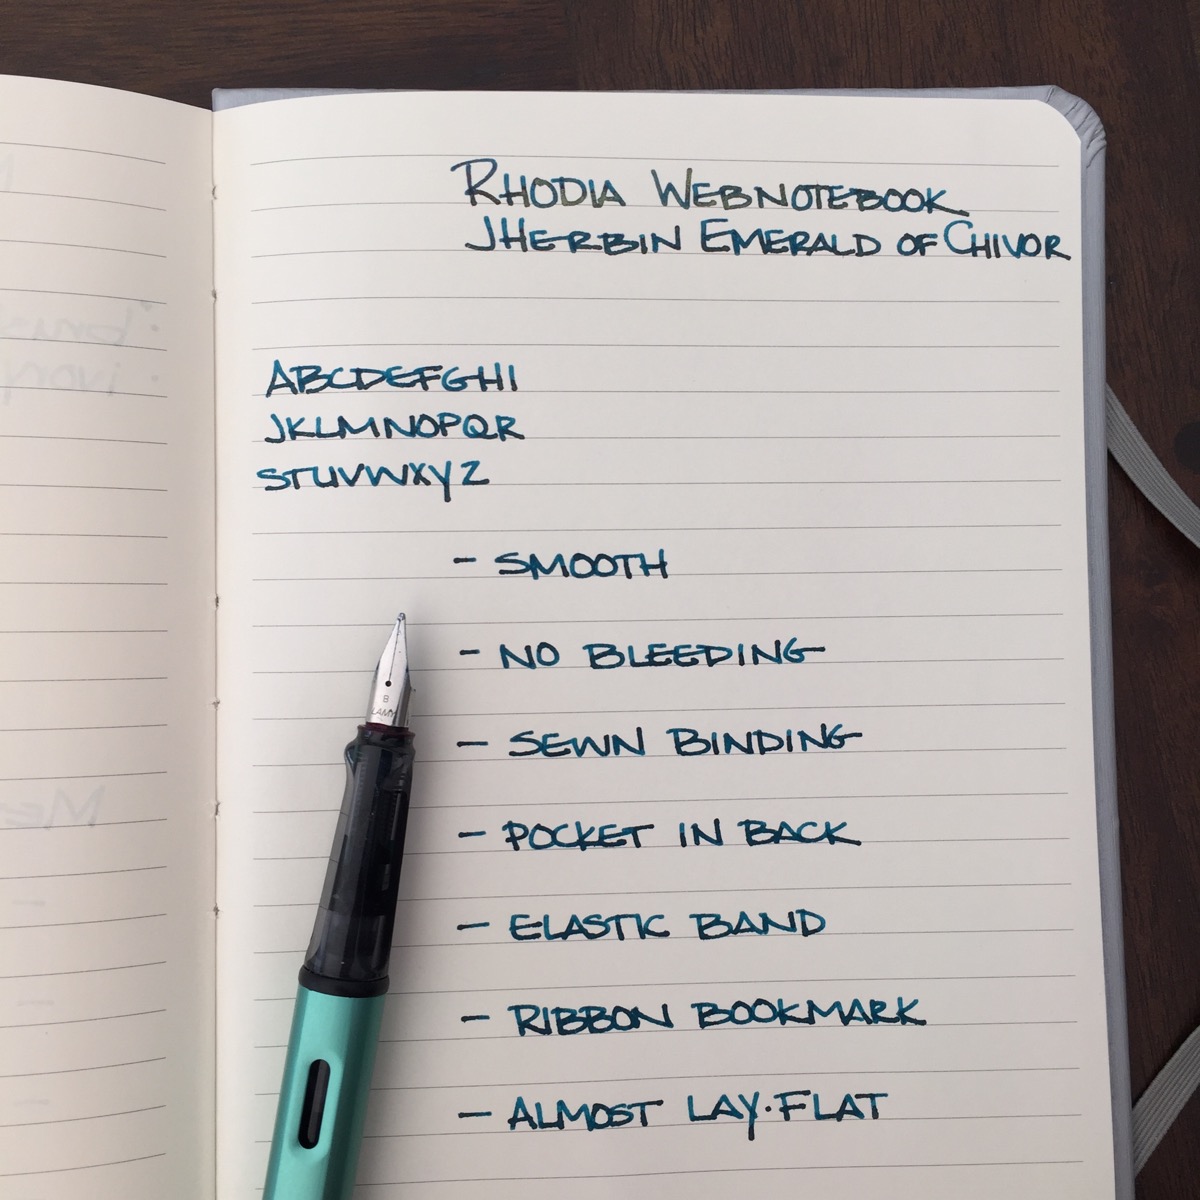 RHODIA WEBNOTEBOOK
JHERBIN EMERALD OF CHIVOR
ABCDEFGHI
JKLMNOPQR
STUVWXYZ
- SMOOTH
- NO BLEEDING
- SEWN BINDING
- POCKET IN BACK
- ELASTIC BAND
- RIBBON BOOKMARK
- ALMOST LAY·FLAT
B
LAMY